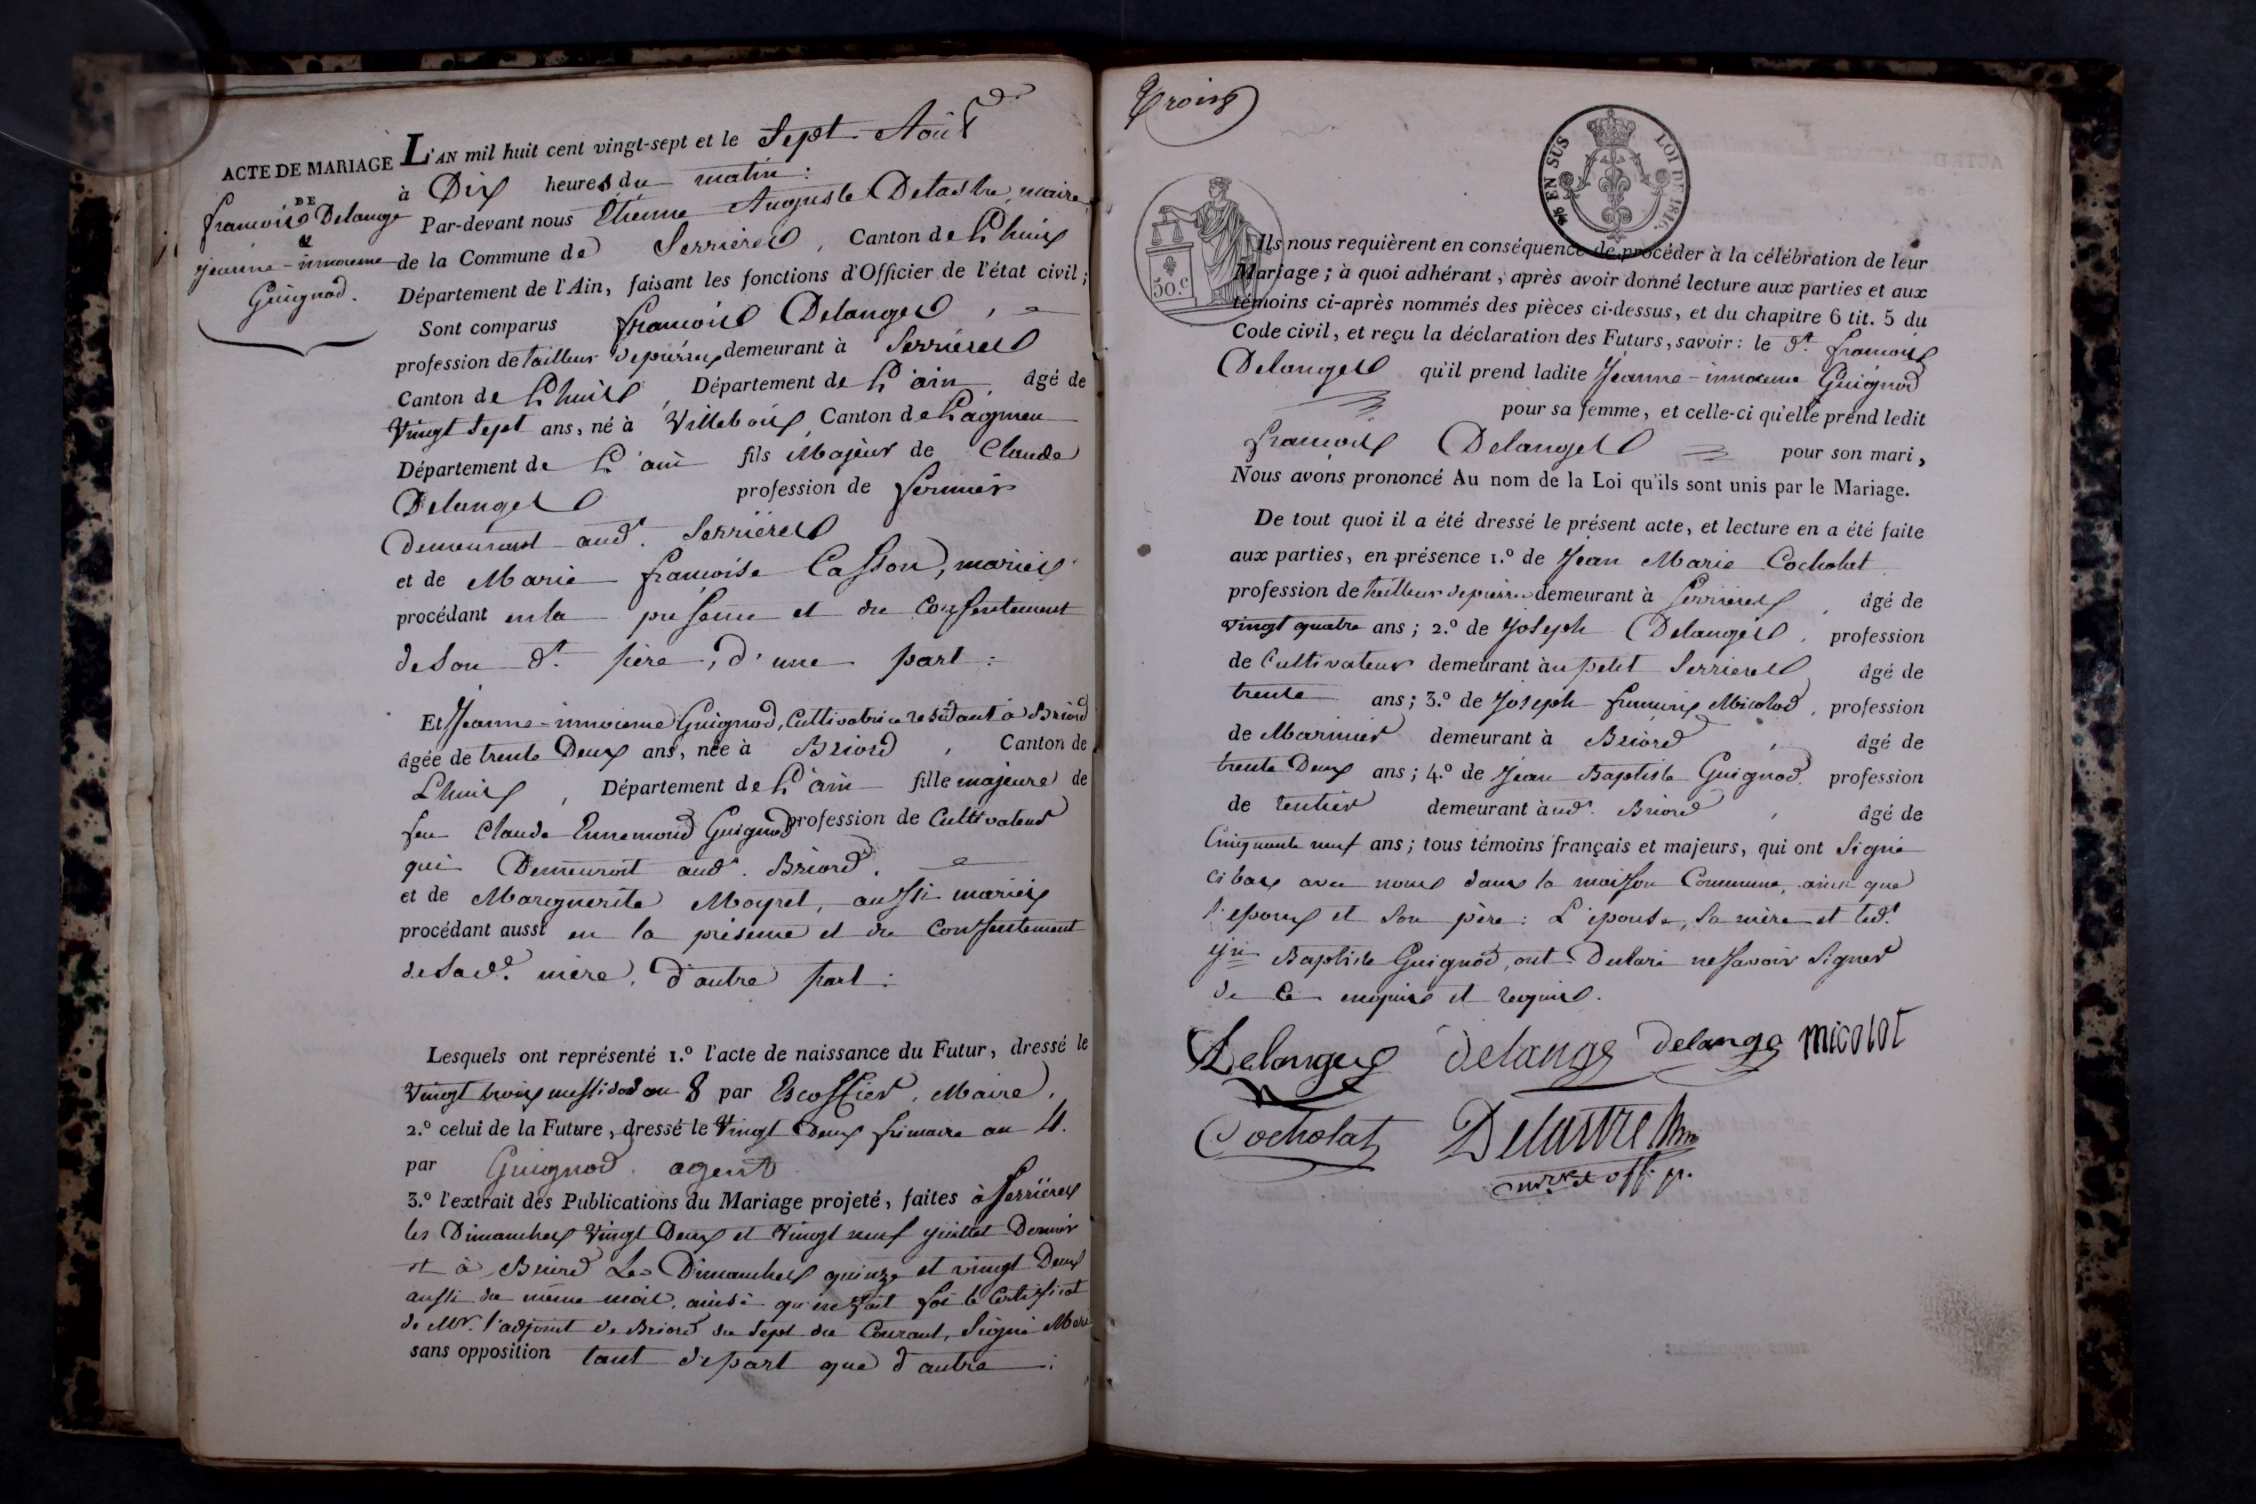 ACTE DE MARIAGE
DE
françois Delange
&
jeanne-innocene
Guignod.
L'AN mil huit cent vingt-sept et le Sept Août
à Dix heures du matin :
Par-devant nous Etienne Auguste Delastre, maire
de la Commune de Serrieres, Canton de Lhuis
Département de l'Ain, faisant les fonctions d'Officier de l'état civil ;
Sont comparus françois Delanges,
profession de tailleur de pierres demeurant à Serrieres
Canton de Lhuis, Département de L'ain âgé de
Vingt Sept ans, né à Villebois, Canton de Lagnieu
Département de L'ain fils Majeur de Claude
Delanges profession de fermier
Demeurant aud. Serrieres
et de Marie françoise Casson, mariés
procédant en la presence et du Consentement
de son dt. père, d'une part :
Et Jeanne-innocene Guignod, Cultivatrice residant à Briord
âgée de trente Deux ans, née à Briord, Canton de
Lhuis, Département de L'ain fille majeure de
feu Claude Ennemond Guignod profession de Cultivateur
qui Demeuroit aud. Briord.
et de Marguerite Moyret, aussi mariés
procédant aussi en la présence et du Consentement
de sad. mère, d'autre part :
Lesquels ont représenté 1.º l'acte de naissance du Futur, dressé le
Vingt trois messidor an 8 par Escoffier, Maire,
2.º celui de la Future, dressé le Vingt Deux frimaire an 4.
par Guignod, agent
3.º l'extrait des Publications du Mariage projeté, faites à Serrieres
les Dimanches Vingt Deux et Vingt neuf juillet Dernier
et à Briord Les Dimanches quinze et vingt Deux
aussi du même mois, ainsi qu'en fait foi le Certificat
de Mr. l'adjoint de Briord du Sept du Courant, Signé
sans opposition tant d'epart que d'autre :
Trois
EN SUS
LOI DE 1816.
50.c
Ils nous requièrent en conséquence de procéder à la célébration de leur
Mariage ; à quoi adhérant, après avoir donné lecture aux parties et aux
témoins ci-après nommés des pièces ci-dessus, et du chapitre 6 tit. 5 du
Code civil, et reçu la déclaration des Futurs, savoir : le dt. françois
Delanges qu'il prend ladite Jeanne-innocene Guignod
pour sa femme, et celle-ci qu'elle prend ledit
françois Delanges pour son mari,
Nous avons prononcé Au nom de la Loi qu'ils sont unis par le Mariage.
De tout quoi il a été dressé le présent acte, et lecture en a été faite
aux parties, en présence 1.º de Jean Marie Cocholat
profession de tailleur de pierres demeurant à Serrieres, âgé de
vingt quatre ans ; 2.º de Joseph Delanges, profession
de Cultivateur demeurant au petit Serrieres âgé de
trente ans ; 3.º de Joseph Micolod, profession
de Marinier demeurant à Briord, âgé de
trente Deux ans ; 4.º de Jean Baptiste Guignod, profession
de rentier demeurant à ud. Briord, âgé de
Cinquante neuf ans ; tous témoins français et majeurs, qui ont Signé
ci bas avec nous dans la maison Commune, ainsi que
l'epoux et Son père : L'epouse, sa mère et led.
jn Baptiste Guignod, ont Déclaré ne savoir Signer
de ce enquis et requis.
Delanges delange delange micolot
Cocholat Delastre